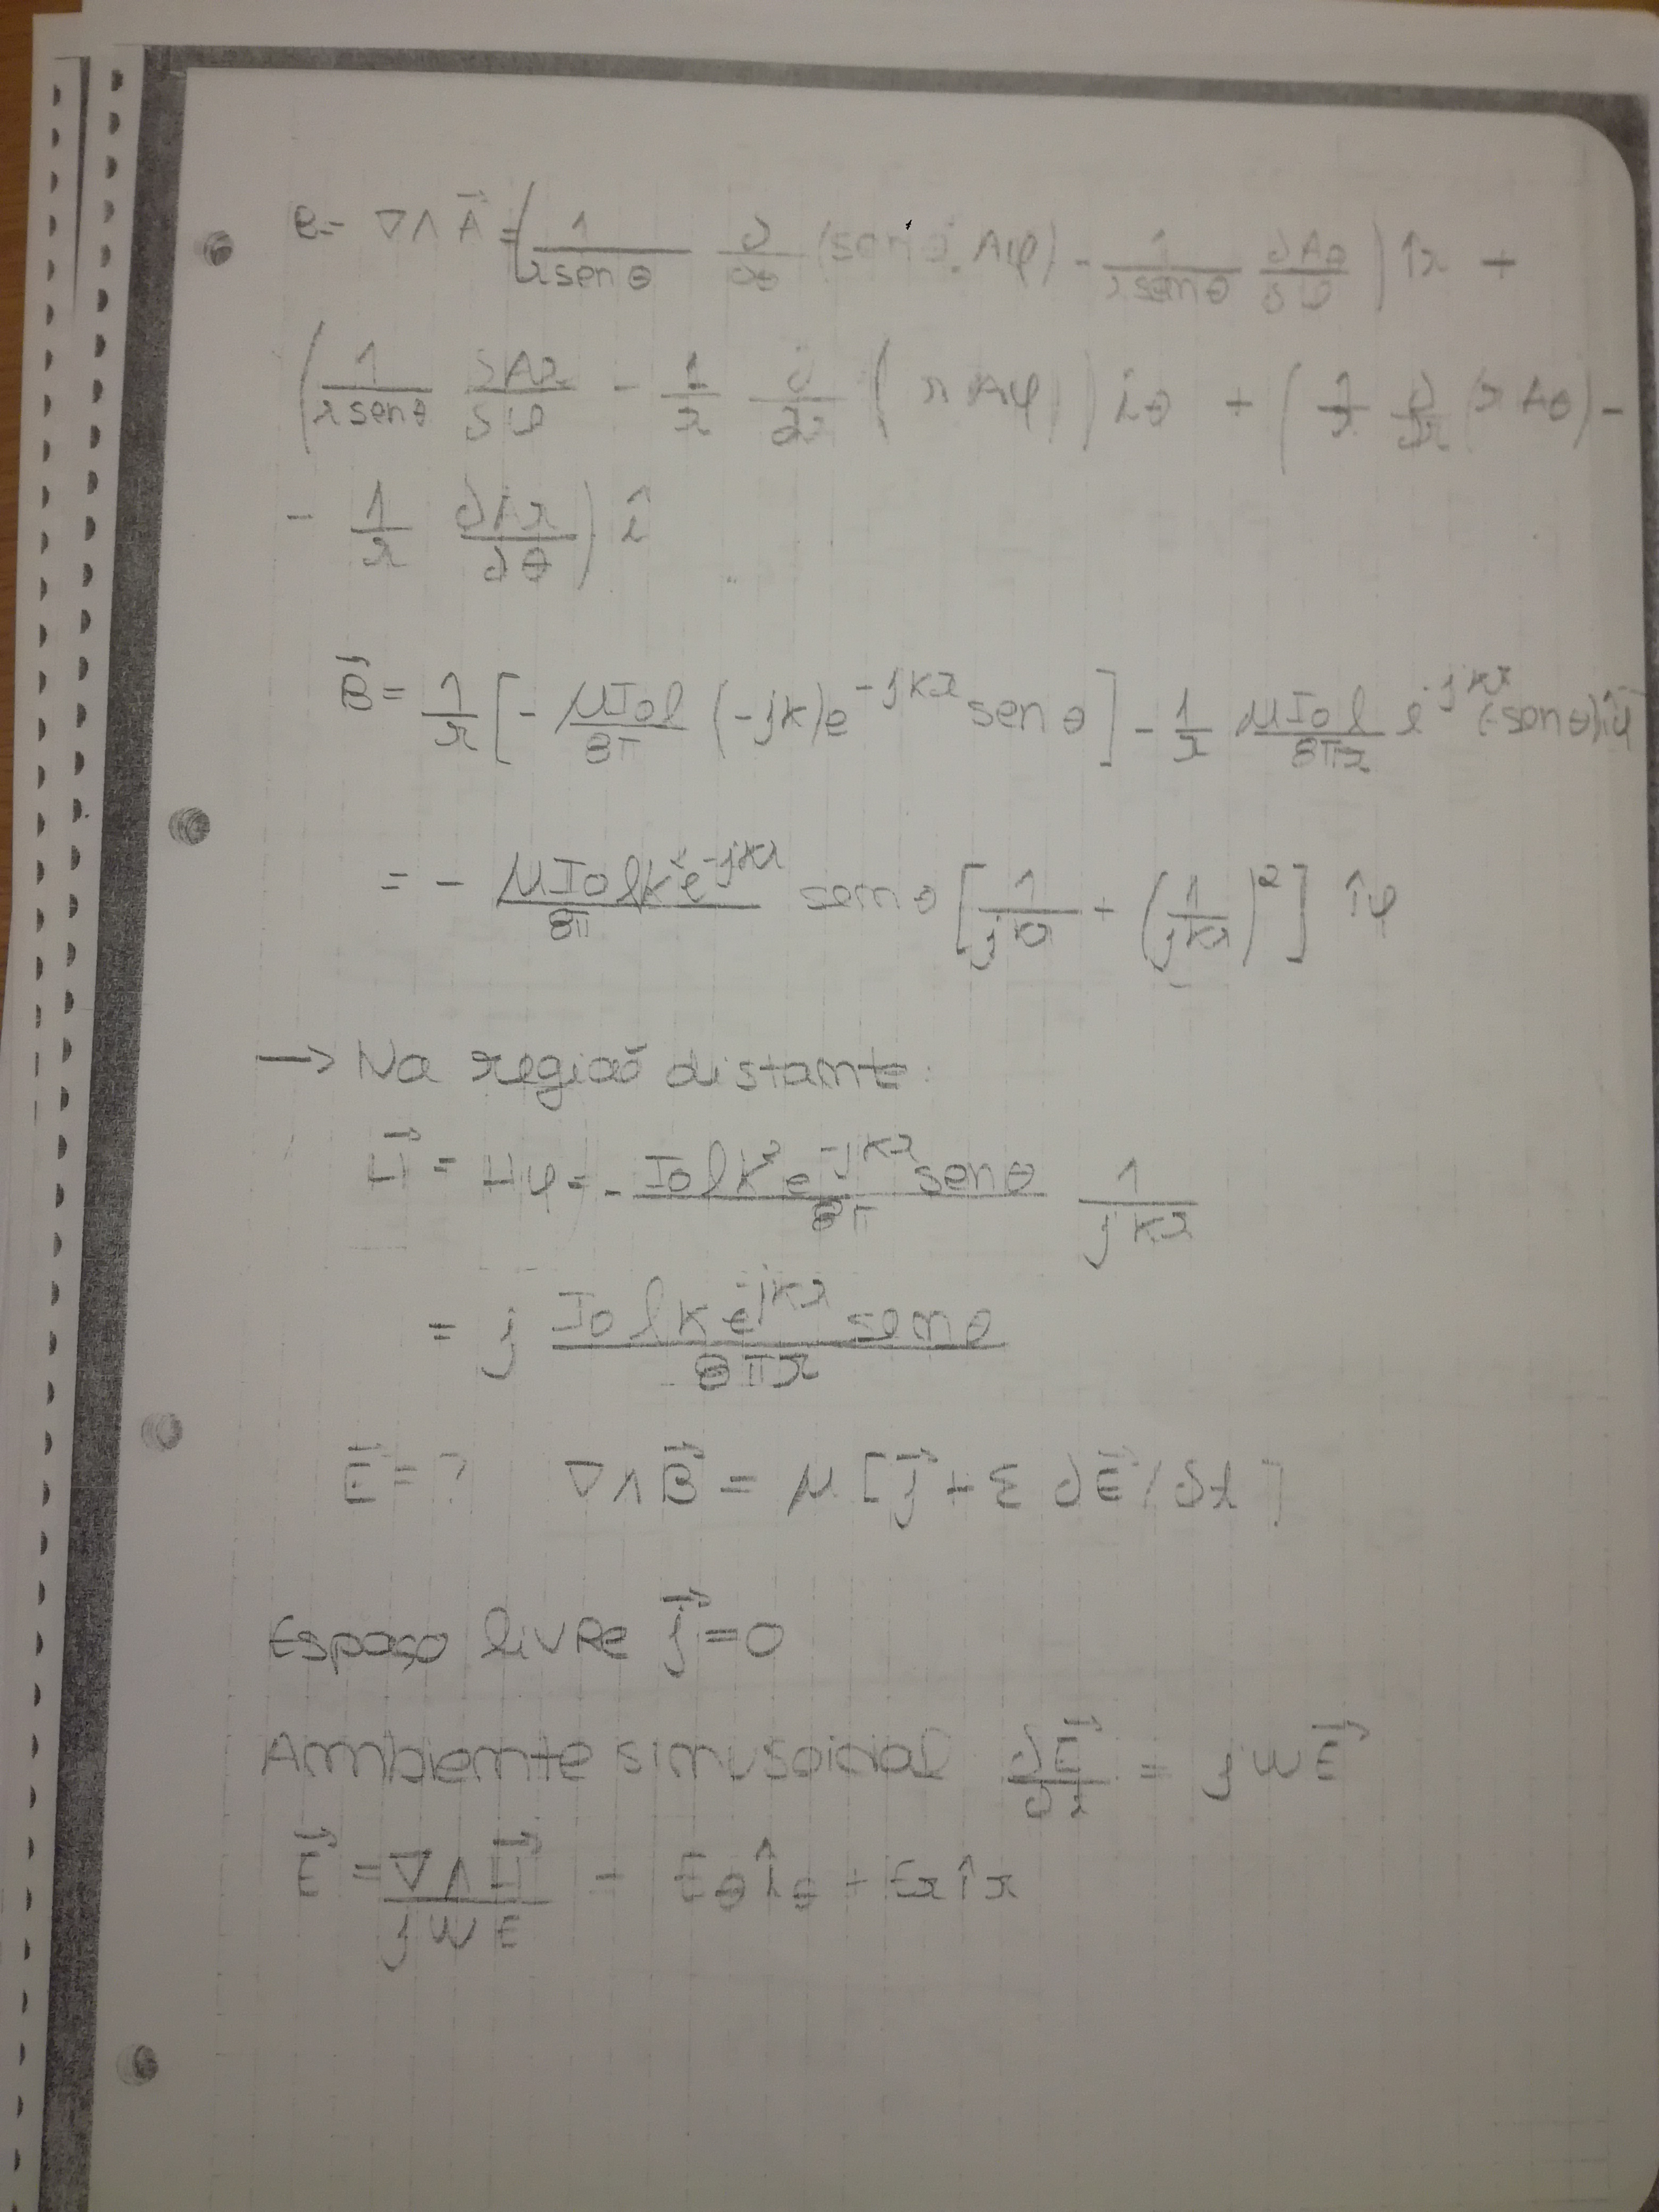 B = ∇∧A⃗ = (1/(r senθ) ∂/∂θ (senθ. Aφ) - 1/(r senθ) ∂Aθ/∂φ) îr +
(1/(r senθ) ∂Ar/∂φ - 1/r ∂/∂r (r Aφ)) îθ + (1/r ∂/∂r (r Aθ) -
- 1/r ∂Ar/∂θ) î
B⃗ = 1/r [- μI₀l/8π (-jk)e^(-jkr) senθ] - 1/r μI₀l/8πr e^(-jkr) (-senθ) îφ
= - μI₀lk²e^(-jkr)/8π senθ [1/jkr + (1/jkr)²] îφ
→ Na região distante:
H⃗ = Hφ = - I₀lk²e^(-jkr) senθ/8π 1/jkr
= j I₀lke^(-jkr) senθ/8πr
E⃗ = ? ∇∧B⃗ = μ [j⃗ + ε ∂E⃗/∂t]
Espaço livre j⃗ = 0
Ambiente sinusoidal ∂E⃗/∂t = jwE⃗
E⃗ = ∇∧H⃗/jwε = Eθ îθ + Er îr